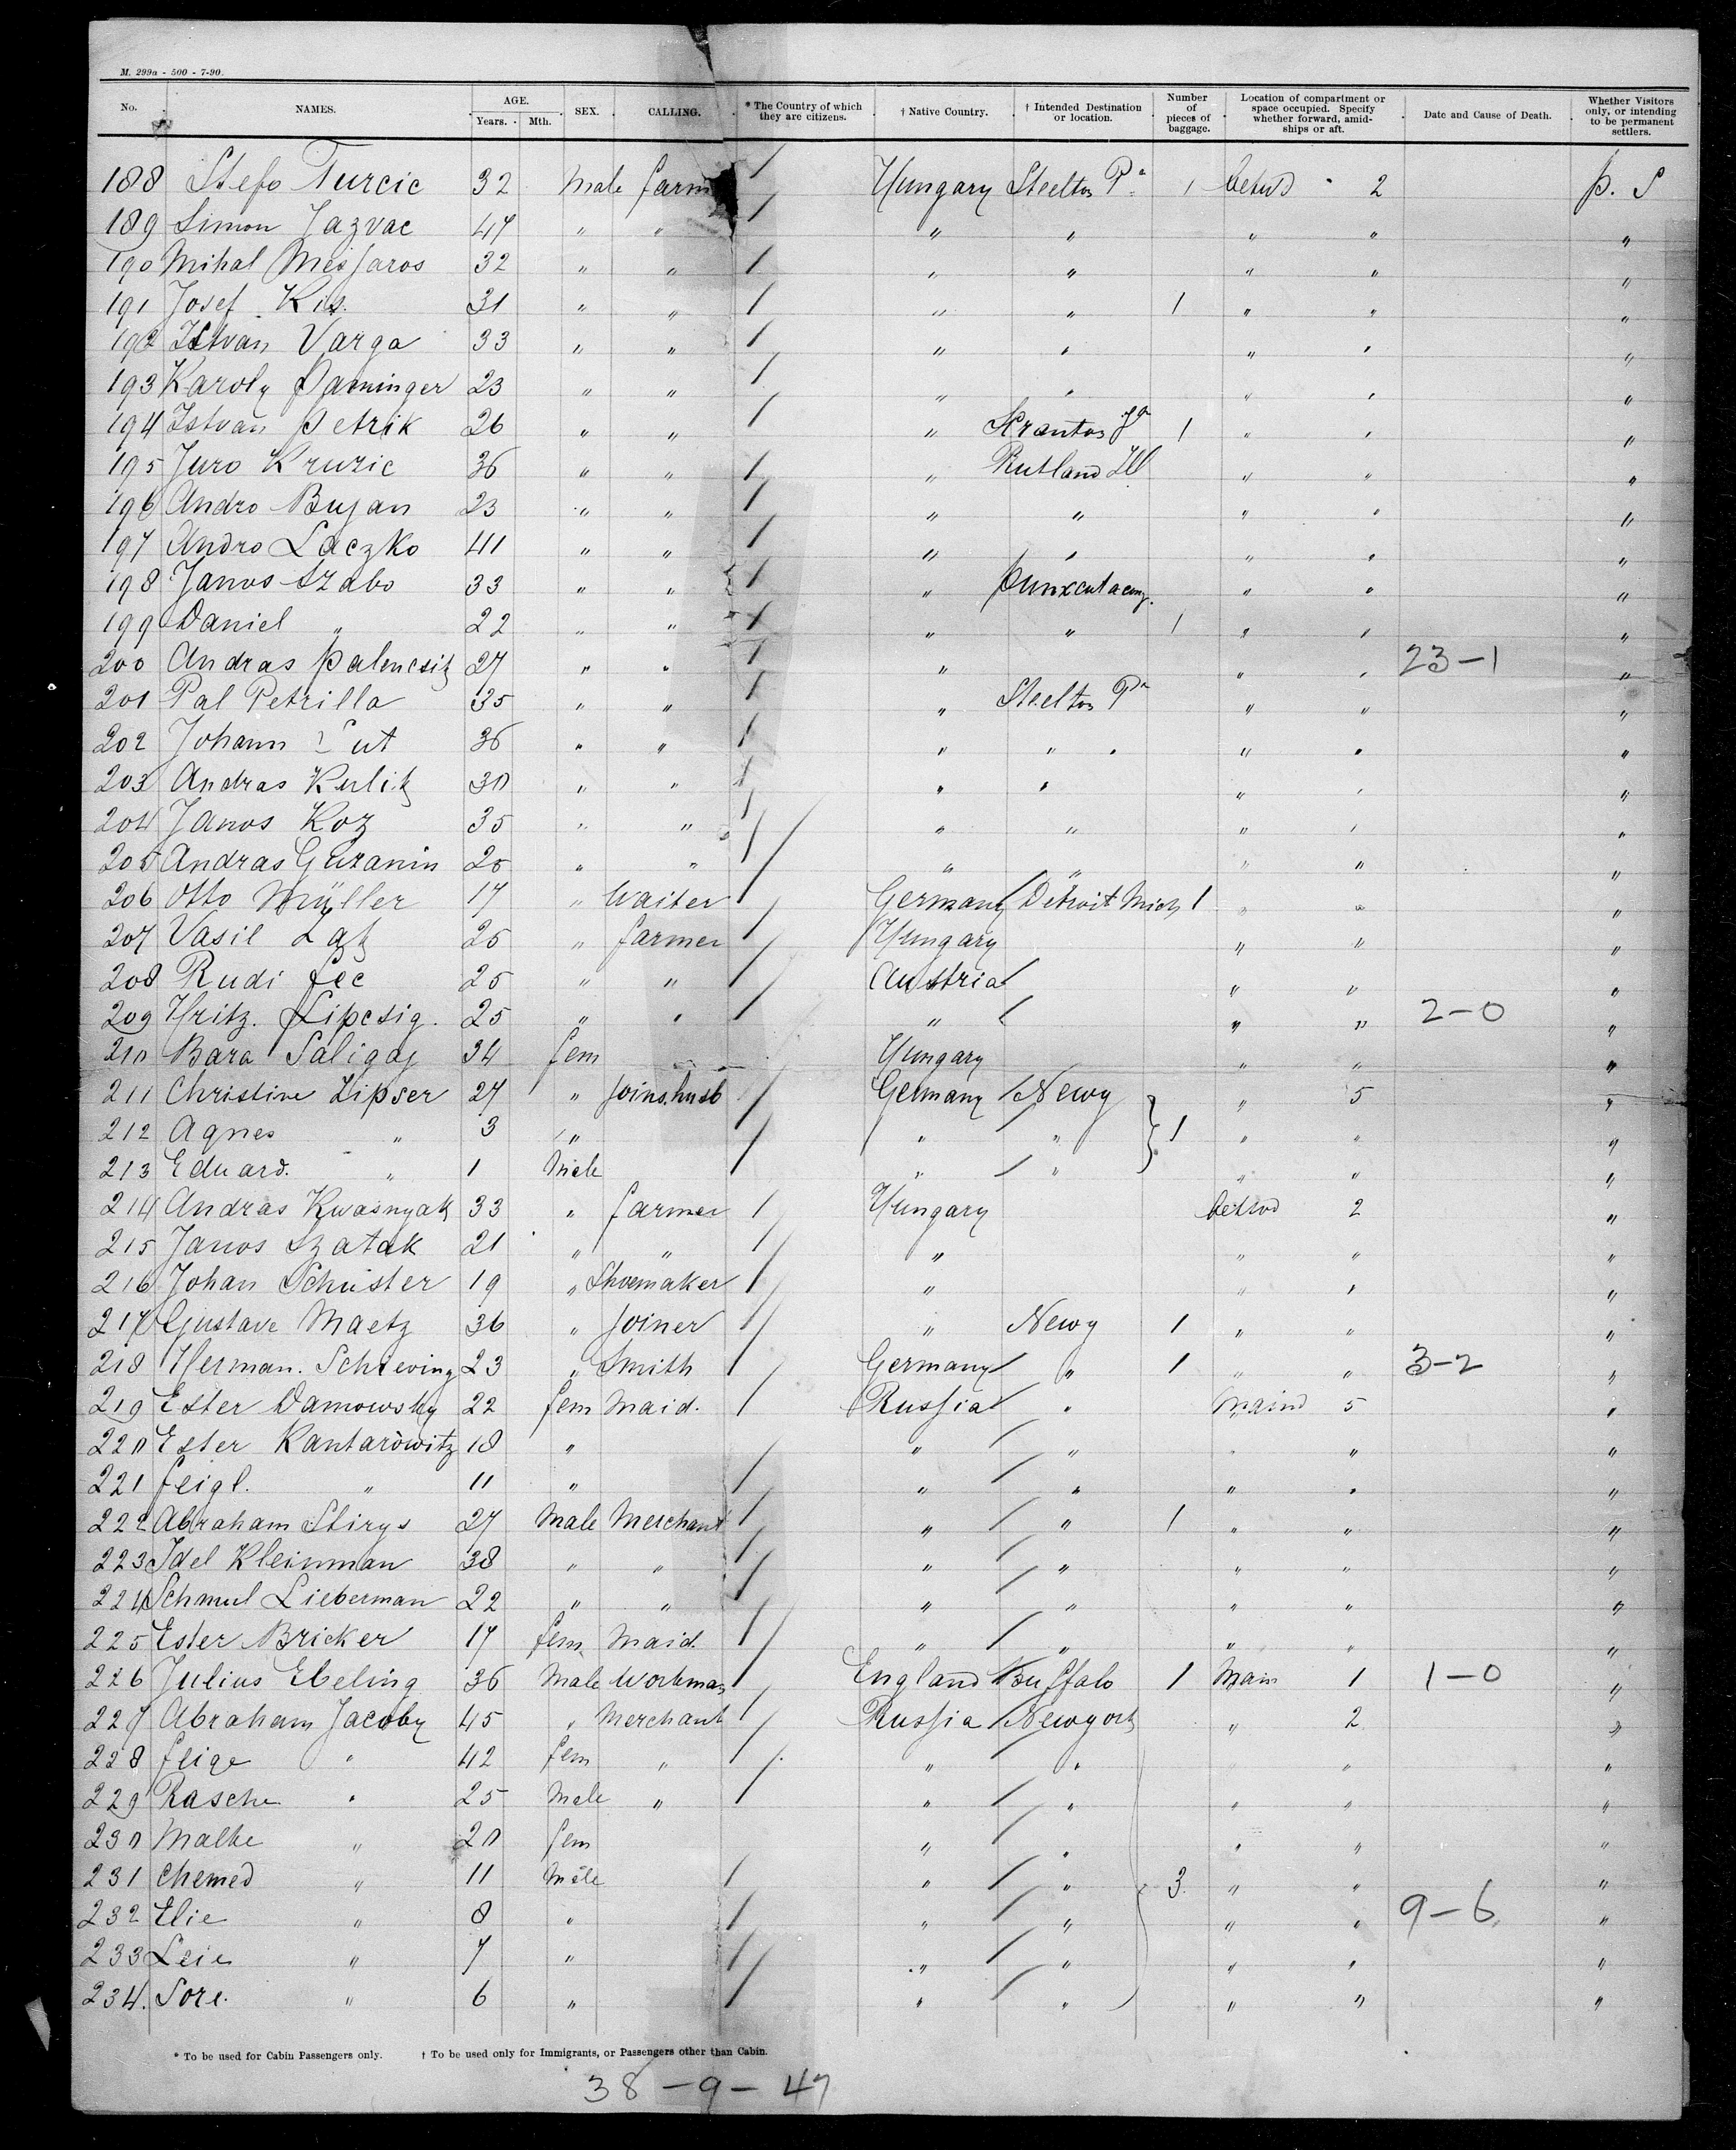 M. 299a - 500 - 7-90.
No. NAMES. AGE. Years. Mth. SEX. CALLING. * The Country of which they are citizens. † Native Country. † Intended Destination or location. Number of pieces of baggage. Location of compartment or space occupied. Specify whether forward, amidships or aft. Date and Cause of Death. Whether Visitors only, or intending to be permanent settlers.
188 Stefo Turcic 32 Male farm / Hungary Steelton Pa 1 betwd " 2 p. S
189 Simon Jazvac 47 " " / " " " " "
190 Mihal Mesjaros 32 " " / " " " " "
191 Josef Kis. 31 " " / " " 1 " " "
192 Istvan Varga 33 " " / " " " " "
193 Karoly 23 " " / " " " " "
194 Istvan Petrik 26 " " / " 1 " " "
195 Juro Kruzic 36 " " / " Rutland Ill " " "
196 Andro Bujan 23 " " / " " " " "
197 Andro Laczko 41 " " / " " " " "
198 Janos Szabo 33 " " / " " " "
199 Daniel " 22 " " / " " 1 " " "
200 Andras Palencsik 27 " " / " " " 23-1 "
201 Pal Petrilla 35 " " / " Steelton Pa " " "
202 Johann 36 " " / " " " " "
203 Andras Kulik 30 " " / " " " " "
204 Janos Koz 35 " " / " " " " "
205 Andras Guzanin 25 " " / " " " " "
206 Otto Müller 17 " Waiter / Germany Detroit Mich 1 " " "
207 Vasil 25 " farmer / Hungary " " "
208 Rudi fec 25 " " / Austria " " "
209 Hritz. Lipcsig. 25 " " / " " " 2-0 "
210 Bara Saligaj 34 fem Hungary " " "
211 Christine Lipser 27 " joins. husb / Germany Newy " 5 "
212 Agnes " 3 " / " " 1 " " "
213 Eduard. " 1 Male / " " " " "
214 Andras Kwasnyak 33 " farmer / Hungary betwd 2 "
215 Janos Szatak 21 " " / " " " "
216 Johan Schuster 19 " Shoemaker / " " " "
217 Gustave Maetz 36 " Joiner / " Newy 1 " " "
218 Herman. Schrewing 23 " Smith / Germany " 1 " " 3-2 "
219 Ester Damowsky 22 fem Maid. / Russia " maind 5 "
220 Ester Kantarowitz 18 " / " " " " "
221 feigl. " 11 " / " " " " "
222 Abraham Stirys 27 Male Merchant / " " 1 " " "
223 Idel Kleinman 38 " " / " " " " "
224 Schmul Lieberman 22 " " / " " " " "
225 Ester Bricker 17 fem Maid. / " " " " "
226 Julius Ebeling 36 Male Workman / England Buffalo 1 Main 1 1-0 "
227 Abraham Jacoby 45 " Merchant / Russia Newyork " 2 "
228 feige " 42 fem " / " " " "
229 Rasche " 25 Male " / " " " " "
230 Malke " 20 fem " " " " "
231 Chemed " 11 Male / " " 3 " " "
232 Elie " 8 " / " " " " 9-6 "
233 Leie " 7 " / " " " " "
234. Sore. " 6 " / " " " " "
* To be used for Cabin Passengers only. † To be used only for Immigrants, or Passengers other than Cabin.
38 - 9 - 47